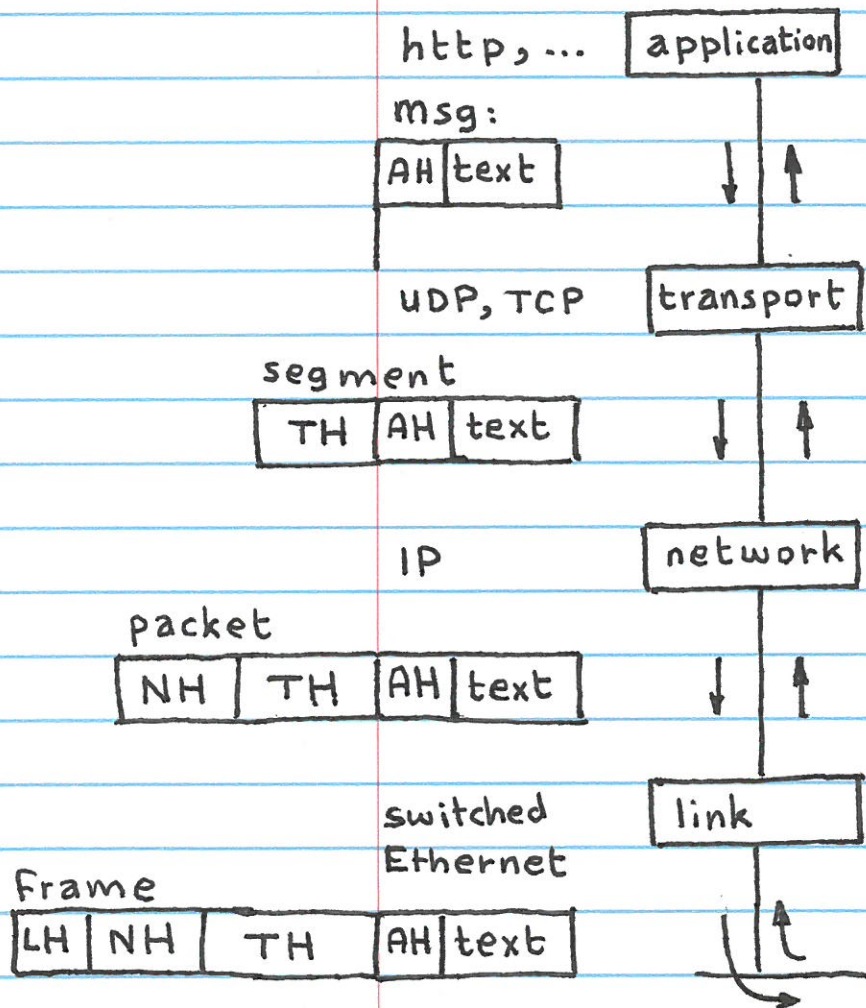 http,... application
msg:
AH text
UDP, TCP transport
segment
TH AH text
IP network
packet
NH TH AH text
switched link
Ethernet
Frame
LH NH TH AH text